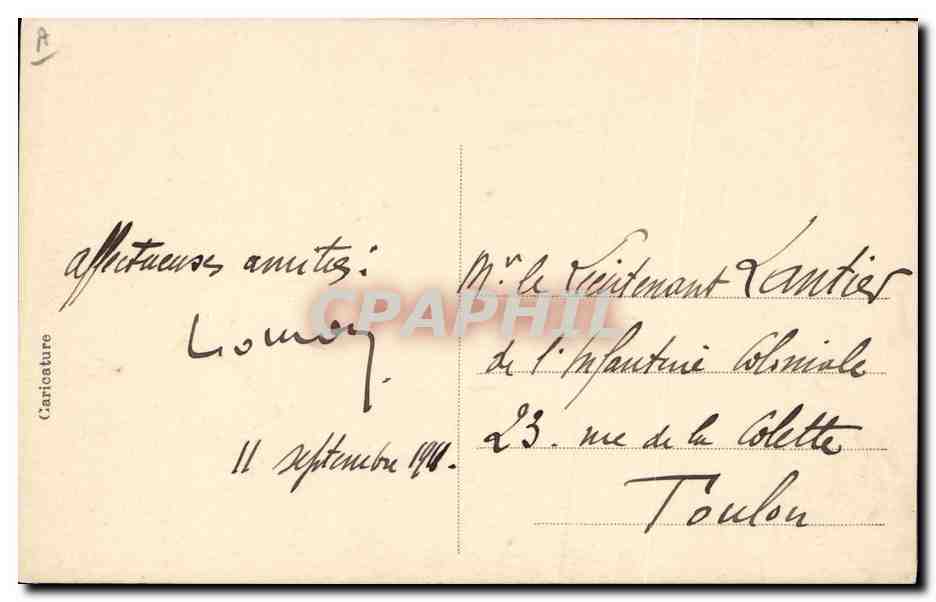 A
affectueuses amitiés :
11 septembre 1911.
Caricature
Mr. le Lieutenant Lantier
de l'Infanterie Coloniale
23. rue de la Colette
Toulon
CPAPHIL